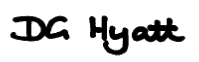 DG Hyatt